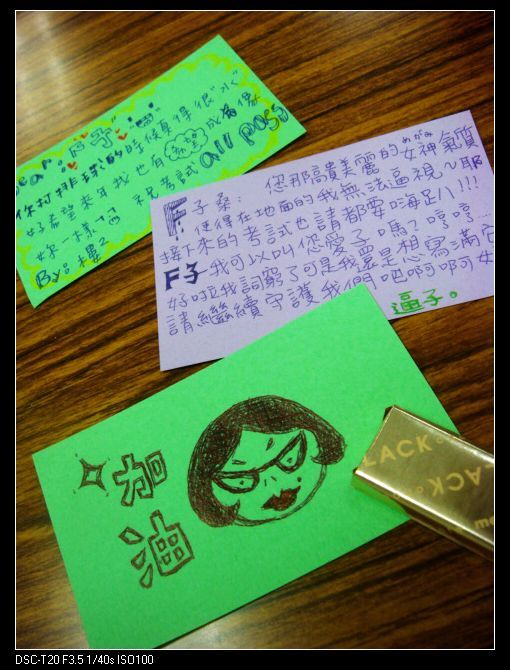 Dear: F子
你打排球的時候真得很"水"
好希望來年我也有希望成為像
妳一樣
祝考試all pass
By:樓2
F子桑：您那高貴美麗的女神氣質
めがみ
使得在地面的我無法逼視～耶
接下來的考試也請都要嗨足八!!!
F子我可以叫您愛子嗎？哼哼....
好啦我詞窮了可是我還是想寫滿它
請繼續守護我們吧啊啊啊女
逼子。
加油
LACK
LACK
me
DSC-T20 F3.5 1/40s ISO100